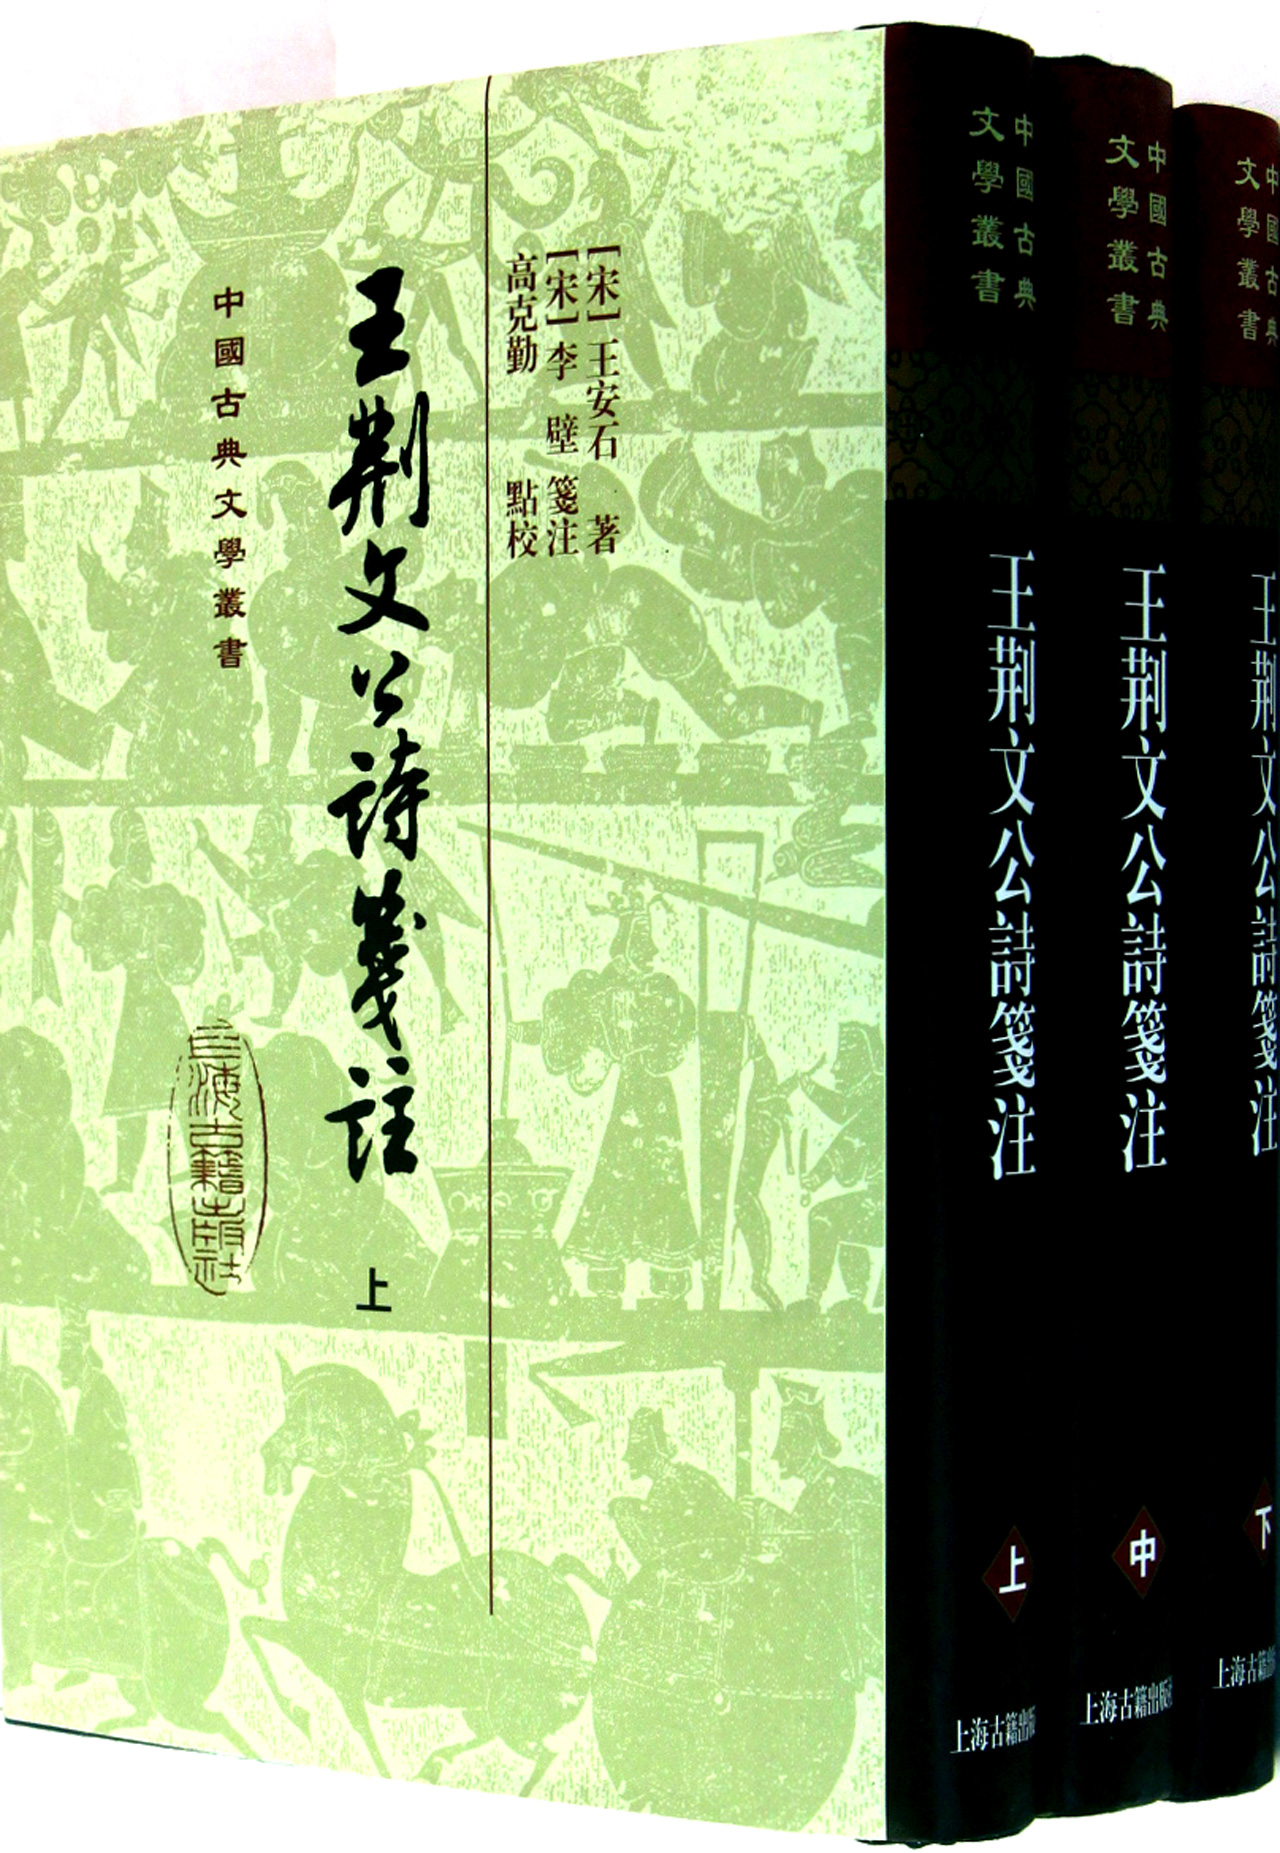 [宋]王安石 著
[宋]李 壁 箋注
高克勤 點校
王荆文公詩箋註
上
中國古典文學叢書
上海古籍出版社
中國古典
文學叢書
王荆文公詩箋注
上
上海古籍出版
中國古典
文學叢書
王荆文公詩箋注
中
上海古籍出版社
中國古典
文學叢書
王荆文公詩箋注
下
上海古籍出版